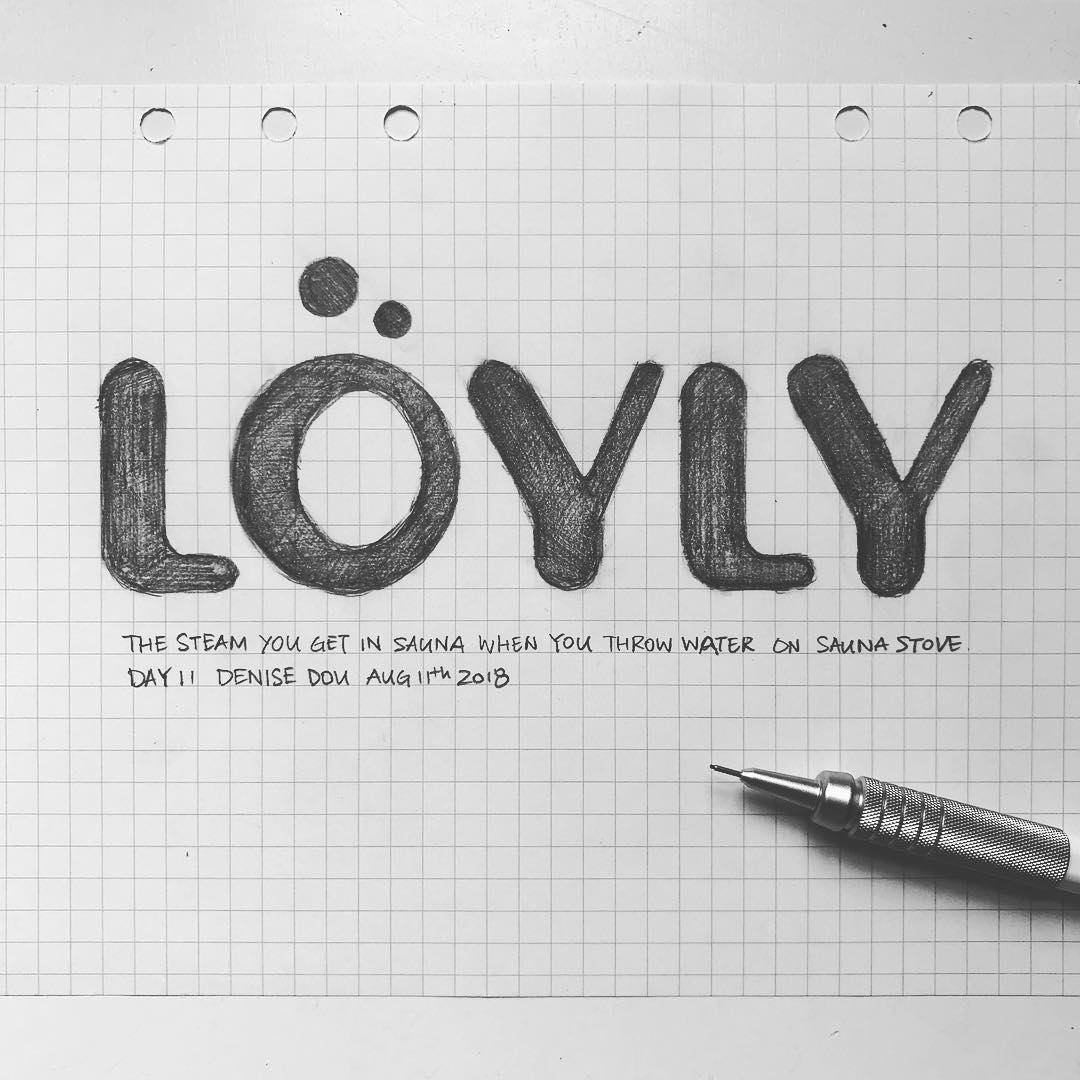 LÖYLY
THE STEAM YOU GET IN SAUNA WHEN YOU THROW WATER ON SAUNA STOVE.
DAY 11 DENISE DOU AUG 11th 2018